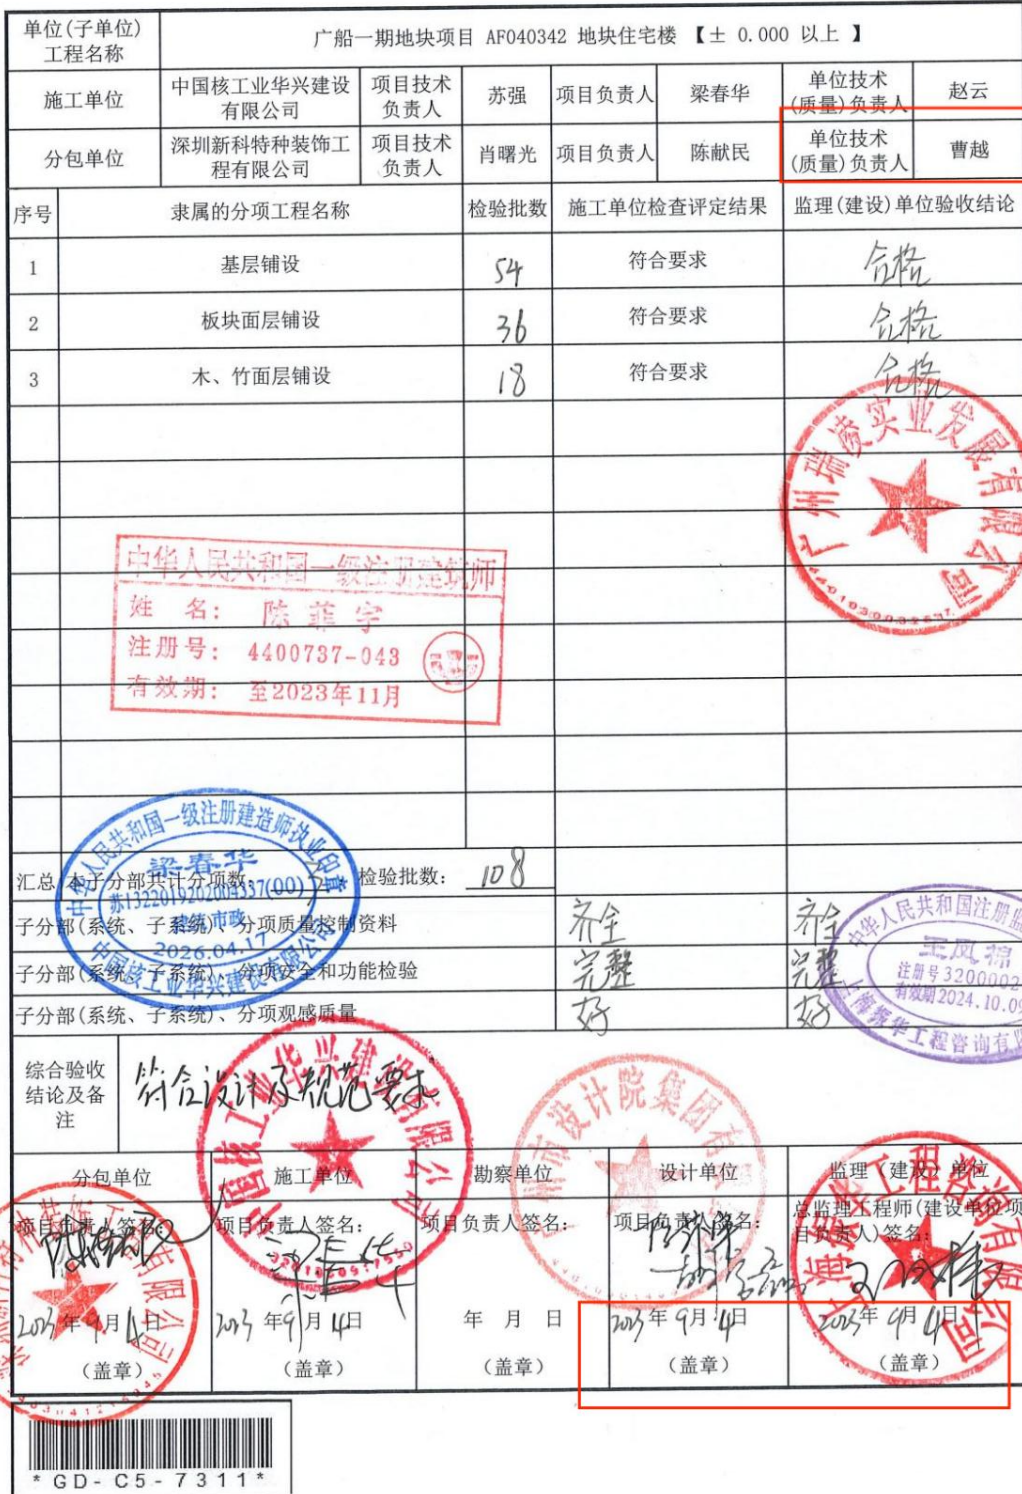 单位(子单位)工程名称 广船一期地块项目 AF040342 地块住宅楼 【± 0.000 以上 】
施工单位 中国核工业华兴建设有限公司 项目技术负责人 苏强 项目负责人 梁春华 单位技术(质量)负责人 赵云
分包单位 深圳新科特种装饰工程有限公司 项目技术负责人 肖曙光 项目负责人 陈献民 单位技术(质量)负责人 曹越
序号 隶属的分项工程名称 检验批数 施工单位检查评定结果 监理(建设)单位验收结论
1 基层铺设 54 符合要求 合格
2 板块面层铺设 36 符合要求 合格
3 木、竹面层铺设 18 符合要求 合格
广州瑞凌实业发展有限公司
中华人民共和国一级注册建筑师
姓 名: 陈菲宇
注册号: 4400737-043
有效期: 至2023年11月
中华人民共和国一级注册建造师执业印章
梁春华
苏1322019202004337(00)
建筑市政
2026.04.17
中国核工业华兴建设有限公司
汇总 本子分部共计分项数: 3 检验批数: 108
子分部(系统、子系统)、分项质量控制资料 齐全 齐全
子分部(系统、子系统)、分项安全和功能检验 完整 完整
子分部(系统、子系统)、分项观感质量 好 好
中华人民共和国注册监
注册号3200002
有效期2024.10.09
工程咨询有
综合验收结论及备注 符合设计及规范要求
中国核工业华兴建设有限公司
州市设计院集团有
分包单位 施工单位 勘察单位 设计单位 监理（建设）单位
项目负责人签名: 项目负责人签名: 项目负责人签名: 项目负责人签名: 总监理工程师(建设单位项目负责人)签名:
2023年9月4日 2023年9月4日 年 月 日 2023年9月4日 2023年9月4日
(盖章) (盖章) (盖章) (盖章) (盖章)
*GD-C5-7311*